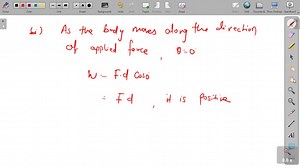 b) As the body moves along the direction
of applied force, θ=0
W = F.d Cos0
= Fd, it is positive